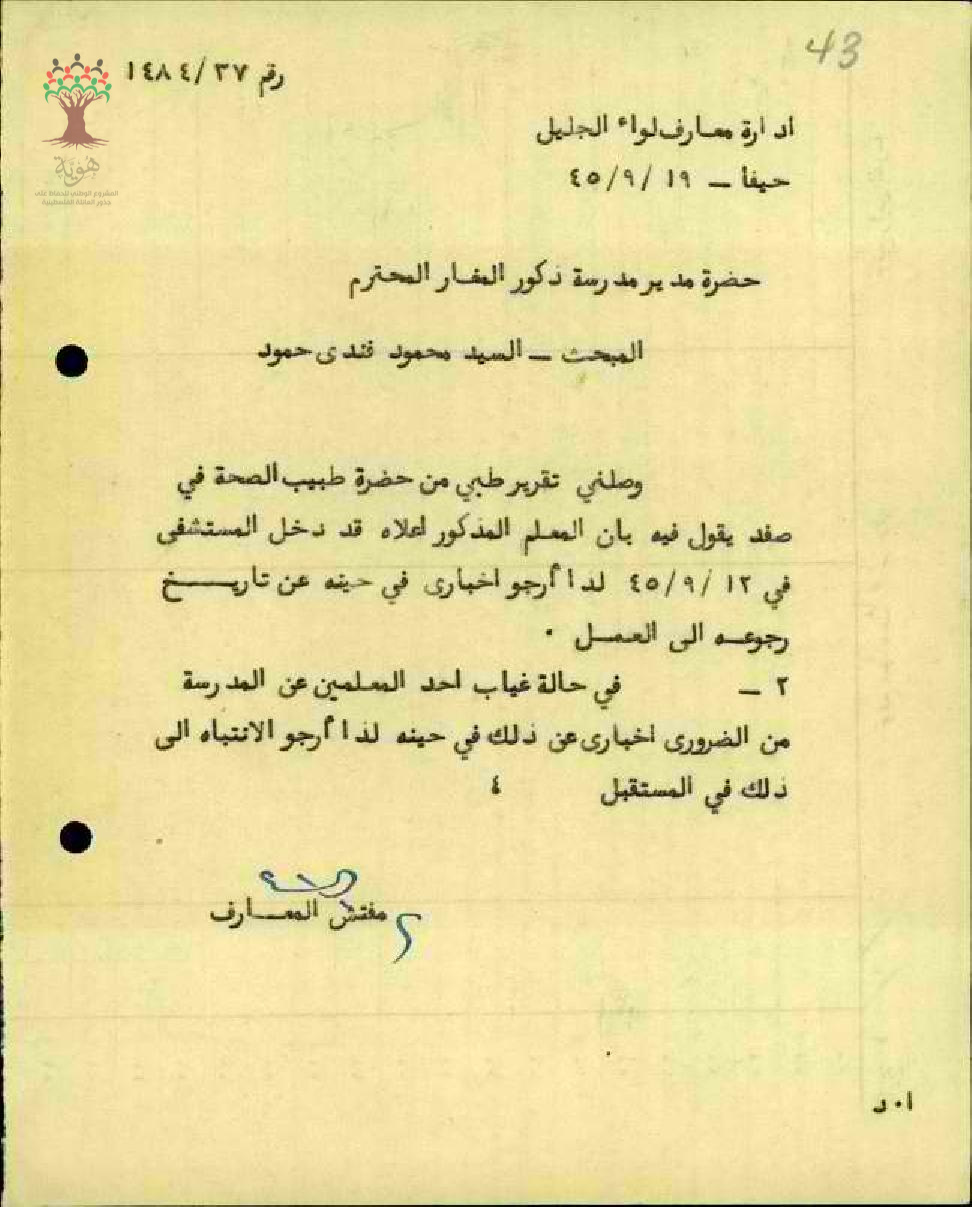 43
رقم ٣٧/١٤٨٤
هوية
المشروع الوطني للحفاظ على
جذور العائلة الفلسطينية
ادارة معارف لواء الجليل
حيفا – ١٩/٩/٤٥
حضرة مدير مدرسة ذكور المغار المحترم
المبحث – السيد محمود فندى حمود
وصلني تقرير طبي من حضرة طبيب الصحة في
صفد يقول فيه بان المعلم المذكور اعلاه قد دخل المستشفى
في ١٢/٩/٤٥ لذا أرجو اخبارى في حينه عن تاريخ
رجوعه الى العمل .
٢ – في حالة غياب احد المعلمين عن المدرسة
من الضرورى اخبارى عن ذلك في حينه لذا أرجو الانتباه الى
ذلك في المستقبل ٤
مفتش المعارف
ا.د